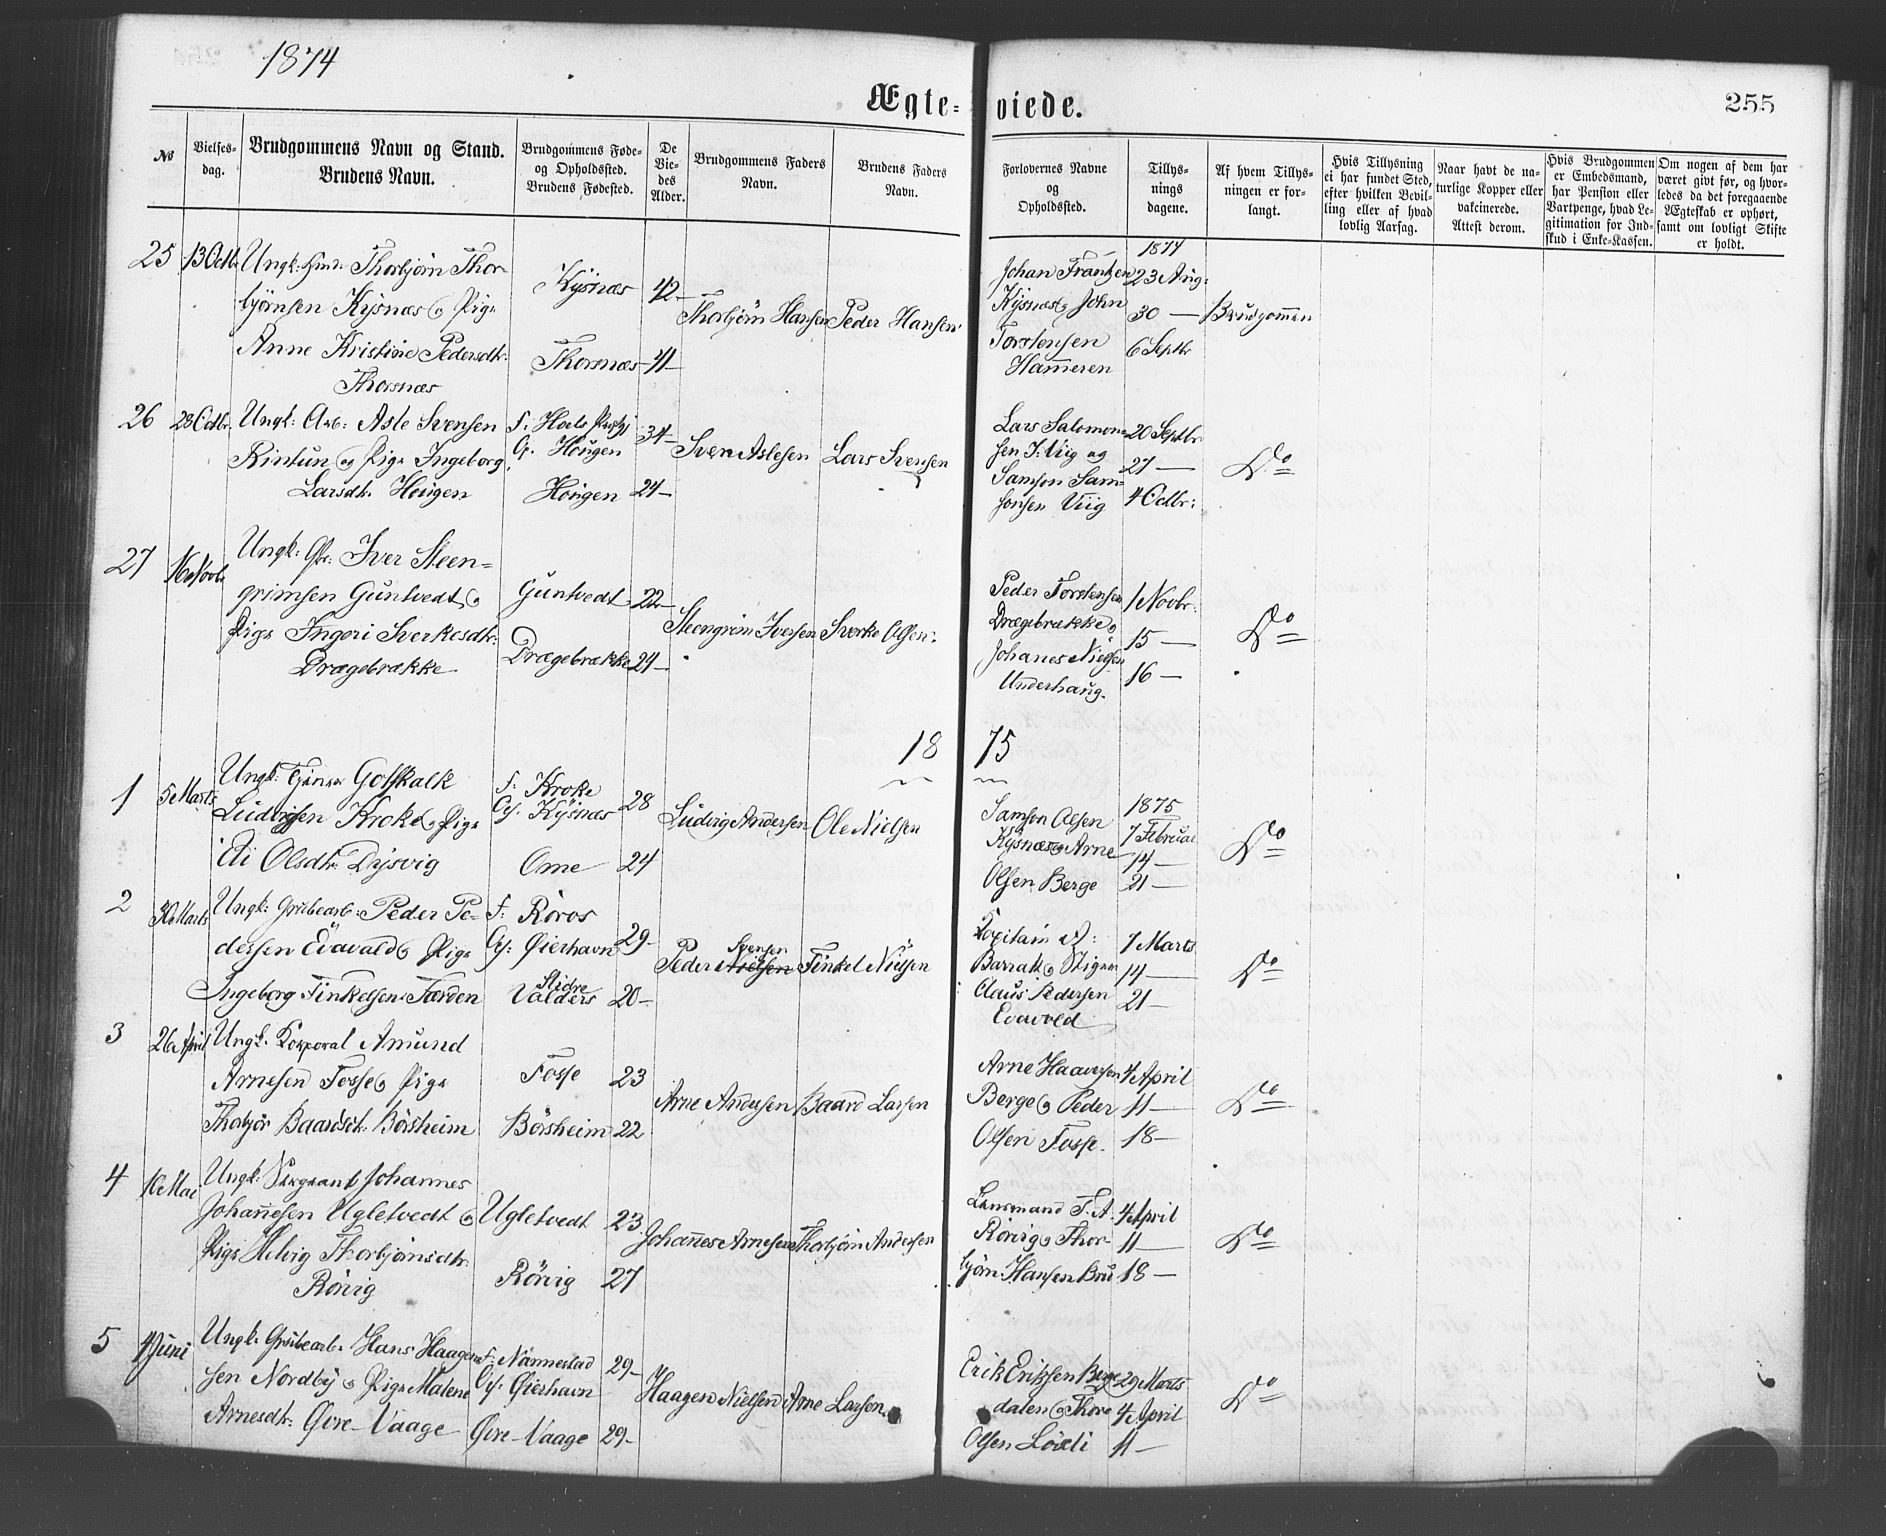 1874
Ægte-viede.
255
No
Vielses-
dag.
Brudgommens Navn og Stand.
Brudens Navn.
Brudgommens Føde-
og Opholdssted.
Brudens Fødested.
De
Vie-
des
Alder.
Brudgommens Faders
Navn.
Brudens Faders
Navn.
Forlovernes Navne
og
Opholdssted.
Tillys-
nings
dagene.
Af hvem Tillys-
ningen er for-
langt.
Hvis Tillysning
ei har fundet Sted,
efter hvilken Bevil-
ling eller af hvad
lovlig Aarsag.
Naar havt de na-
turlige Kopper eller
vakcinerede.
Attest derom.
Hvis Brudgommen
er Embedsmand,
har Pension eller
Vartpenge, hvad Le-
gitimation for Ind-
skud i Enke-Kassen.
Om nogen af dem har
været givt før, og hvor-
ledes da det foregaaende
Ægteskab er ophørt,
samt om lovligt Skifte
er holdt.
25
13 Octbr
Ungk: Thorbjörn Thor-
björnsen Kysnæs og Pige
Anne Kristine Pedersdtr:
Thorsnæs
Kysnæs
Thorsnæs
42-
41-
Thorbjörn Hansen
Peder Hansen
Johan Frantzen
Kysnæs og John
Torstensen
Hammeren
1874
23 Aug:
30 -
6 Septbr
Brudgommen
26
28 Octbr.
Ungk: Arb: Asle Svensen
Rintun og Pige Ingeborg
Larsdtr. Hougen
F: Hoels Præstgj
O: Hougen
Hougen
34-
24-
Sven Aslesen
Lars Svensen
Lars Salomon-
sen I: Viig og
Samson Sam-
sonsen Viig
20 Septbr
27 -
4 Octbr:
Do
27
16 Novbr
Ungk: Gr: Iver Steen-
grimsen Guntvedt og
Pige Ingeri Sverkesdtr:
Drægebrække
Guntvedt
Drægebrække
22-
24-
Steengrim Iversen
Sverke Olsen
Peder Torstensen
Drægebrække og
Johanes Nielsen
Underhaug.
1 Novbr:
15 -
16 -
Do
18 75
1
5 Marts
Ungk: Tjener Gotskalk
Ludvigsen Kroke og Pige
Eli Olsdtr. Dysvig
F: Kroke
O: Kysnæs
Ome
28
24
Ludvig Andersen
Ole Nielsen
Samson Olsen
Kysnæs og Arne
Olsen Berge
1875
7 Februar
14 -
21 -
Do
2
30 Marts
Ungk: Grubearb: Peder Pe-
dersen Evavold og Pige
Ingeborg Finkelsen Færden
F: Röros
O: Øierhavn
Slidre
Valders
29-
20-
Svensen
Peder Nielsen
Finkel Nielsen
Kapitain A:
Barrat og Stiger
Claus Pedersen
Evavold
7 Marts
14 -
21 -
Do
3
26 April
Ungk. Korporal Amund
Arnesen Fosse og Pige
Thorbjör Baardsdtr. Börsheim
Fosse
Börsheim
23
22
Arne Andersen
Baard Larsen
Arne Haaversen
Berge og Peder
Olsen Fosse.
4 April
11 -
18 -
Do
4
10 Mai
Ungk. Sergeant Johannes
Johannesen Ugletvedt og
Pige Helvig Thorbjörnsdtr.
Rönig
Ugletvedt
Rönig
23
27
Johannes Arnesen
Thorbjörn Andersen
Lensmand T. A.
Rönig og Thor-
björn Hansen Bru
4 April
11 -
18 -
Do
5
4 Juni
Ungk. Grubearb. Hans Haagen-
sen Nordby og Pige Malene
Arnesdtr. Øvre-Vaage
F: Nannestad
O: Øierhavn
Øvre-Vaage
29-
29-
Haagen Nielsen
Arne Larsen
Erik Eriksen Berge-
dalen og Thore
Olsen Lövli
29 Marts
4 April
11 -
Do